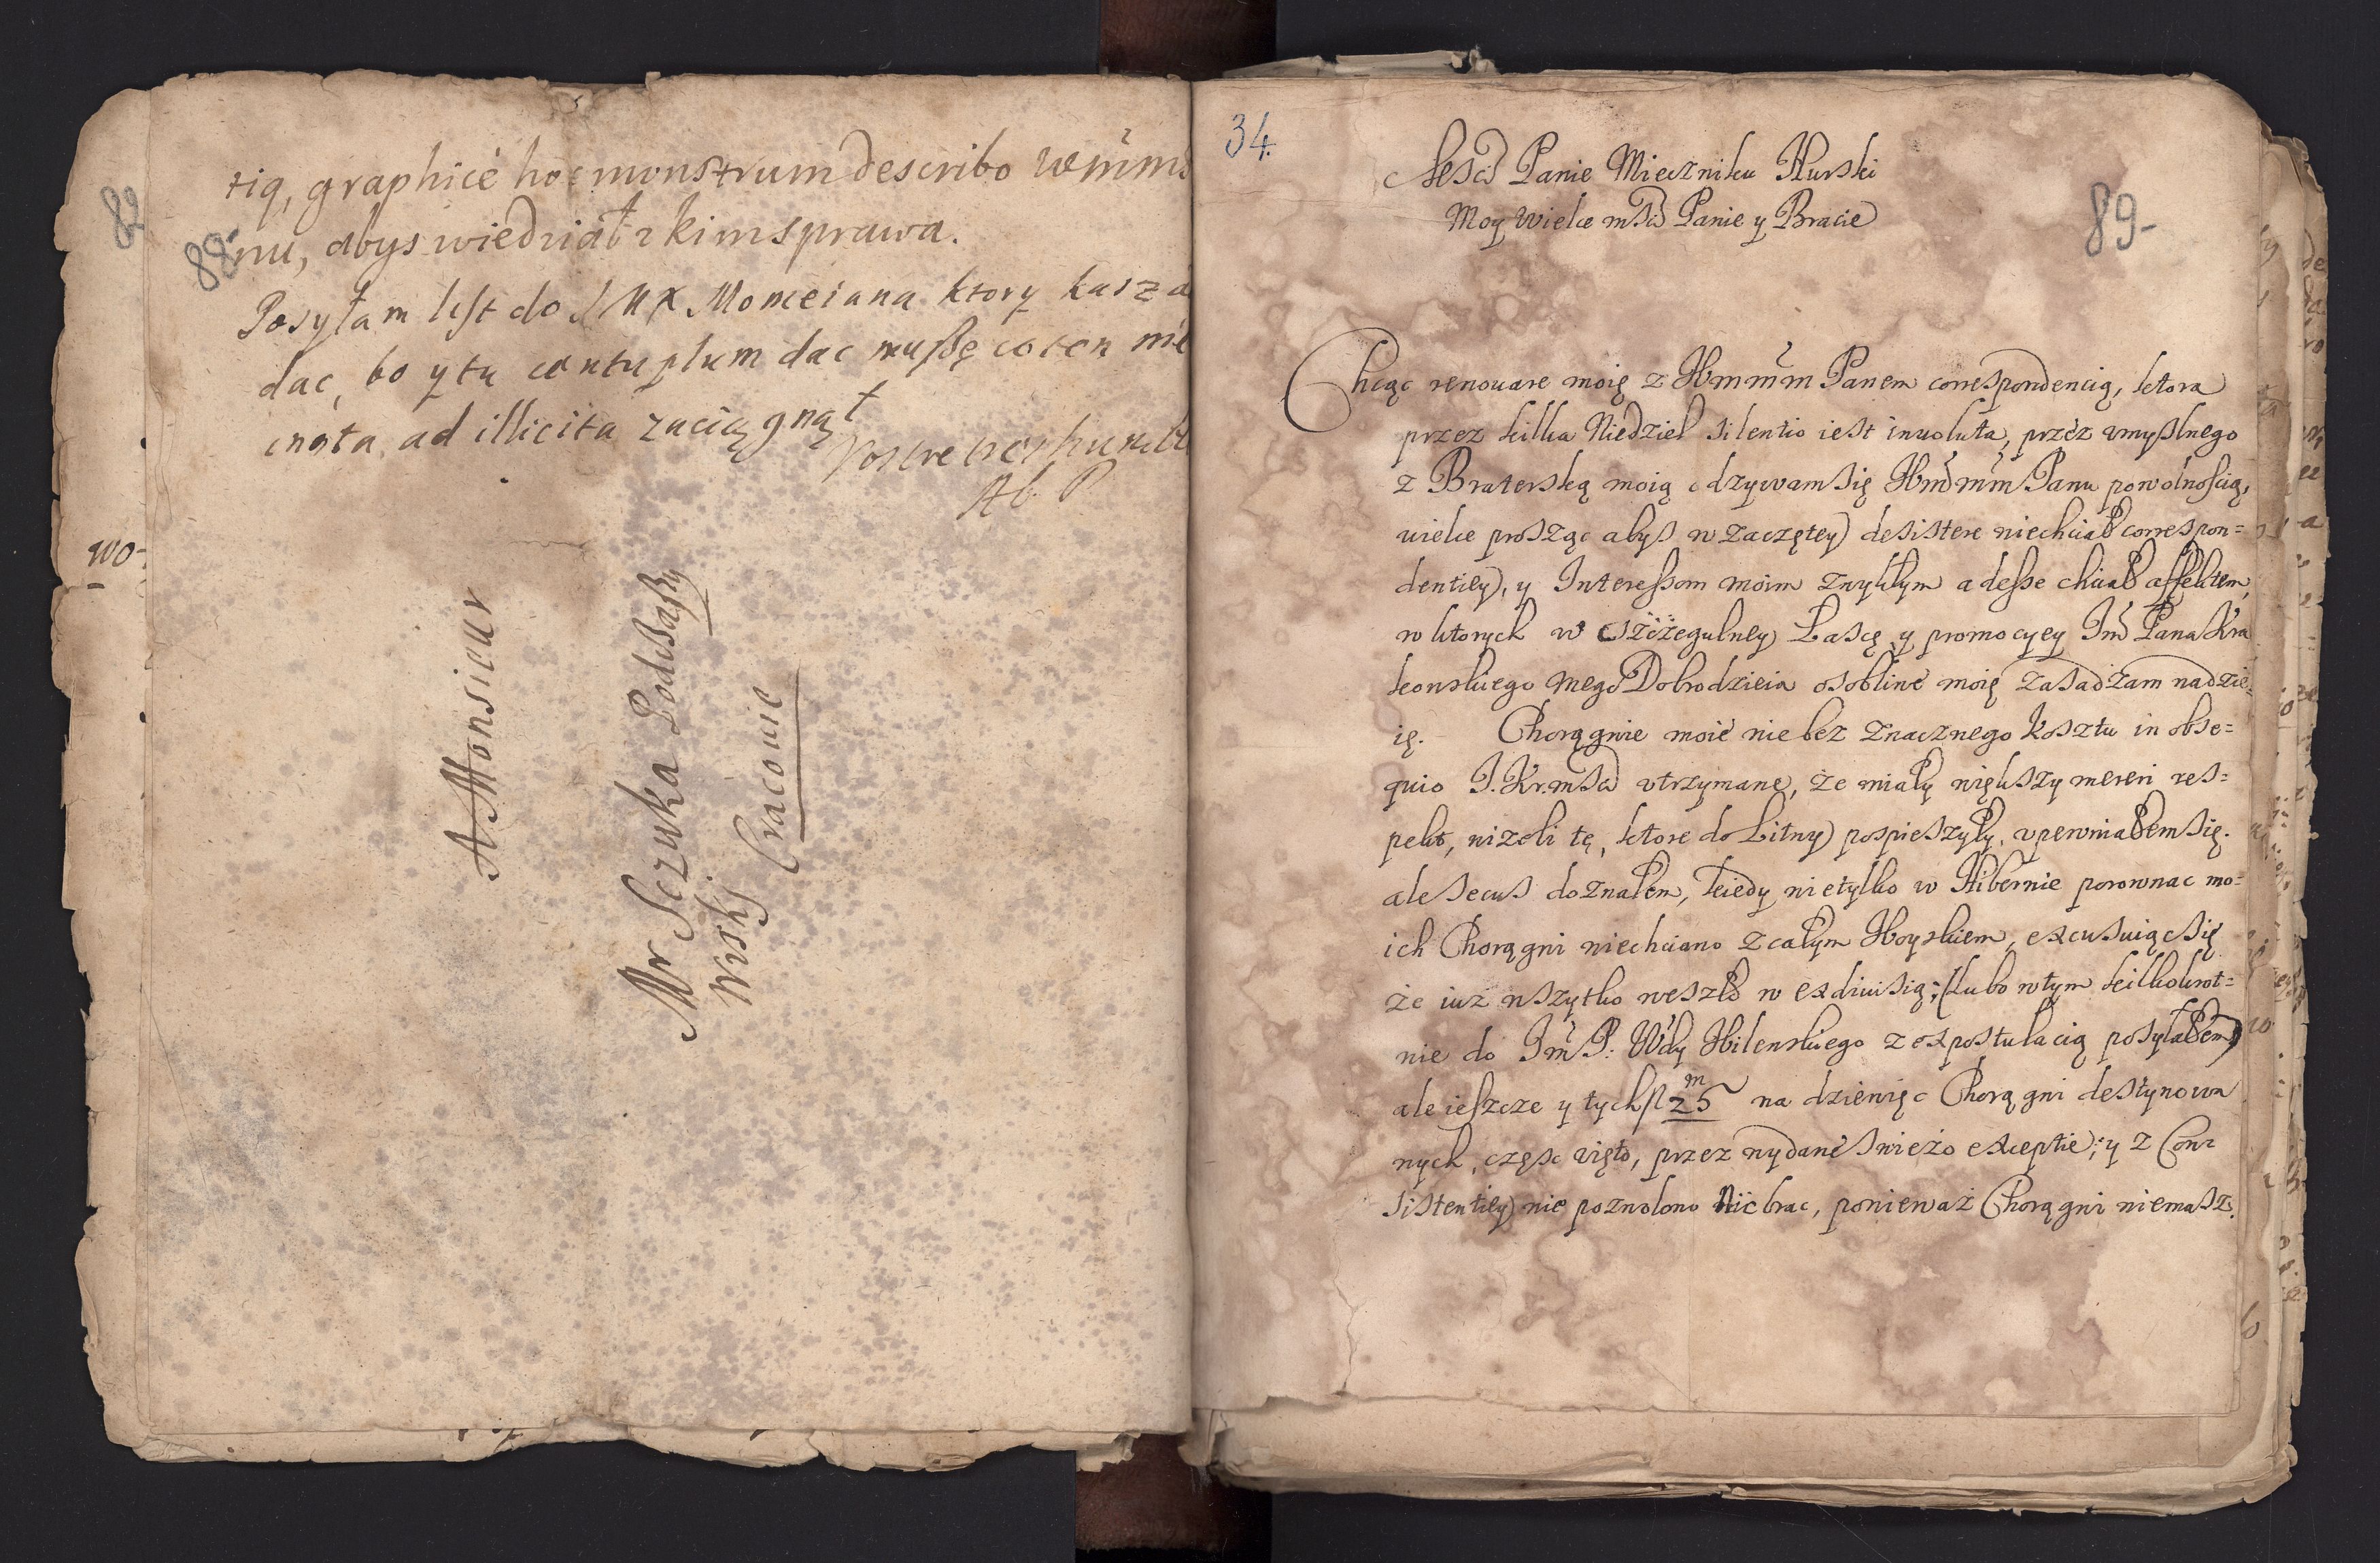 tią, graphicè hoc monstrum describo Wmmś
nu, abys wiedział z kim sprawa.
82
88
Posyłam list do JMX Momeiana ktory kasz a
dac, bo y tu centuplum dac muszę co ten nie
cnota, ad illicita zaciągnął
Vostre tres humble
Ab. P
wo-
A Monsieur
Mr Sczuka Podstaßy
Wiskj
Cracovie
34.
89-
Mości Panie Mieczniku Nurski
Moy Wielce mści Panie y Bracie
Chcąc renouare moię z Wmmm Panem correspondencią, ktora
przez kilka Niedziel silentio iest inuoluta, przez vmyślnego
z Braterską moią odzywam się Wmmm Panu powolnością,
wielce prosząc abyś w zaczętey desistere niechciał correspon=
dentiey, y Interessom moim zwykłym adesse chciał affektem,
w ktorych w szczegulney Łascę y promocyey Jm Pana Kra
kowskiego mego Dobrodzieia osobliwe moię zasadzam nadzie=
ię. Chorągwie moie nie bez znacznego kosztu in obse=
quio J. Kr. mści vtrzymane, że miały większy mereri res=
pekt, nizeli te, ktore do Litwy pospieszyły, vpewniałem się.
ale secus doznałem, kiedy nietylko w Hibernie porownac mo=
ich Chorągwi niechciano z całym Woyskiem, excusuiąc się
że iuz wszytko weszło w exdiuisią; (lubo w tym kilkokrot=
nie do Jm P: Wdy Wilenskiego z expostulacią posyłałem)
ale ieszcze y tych fl 25 m na dziewięc Chorągwi destynowa
nych, częśc vięto, przez wydane swiezo exceptie; y z Con=
sistentiey nie pozwolono nic brac, poniewaz Chorągwi niemasz.